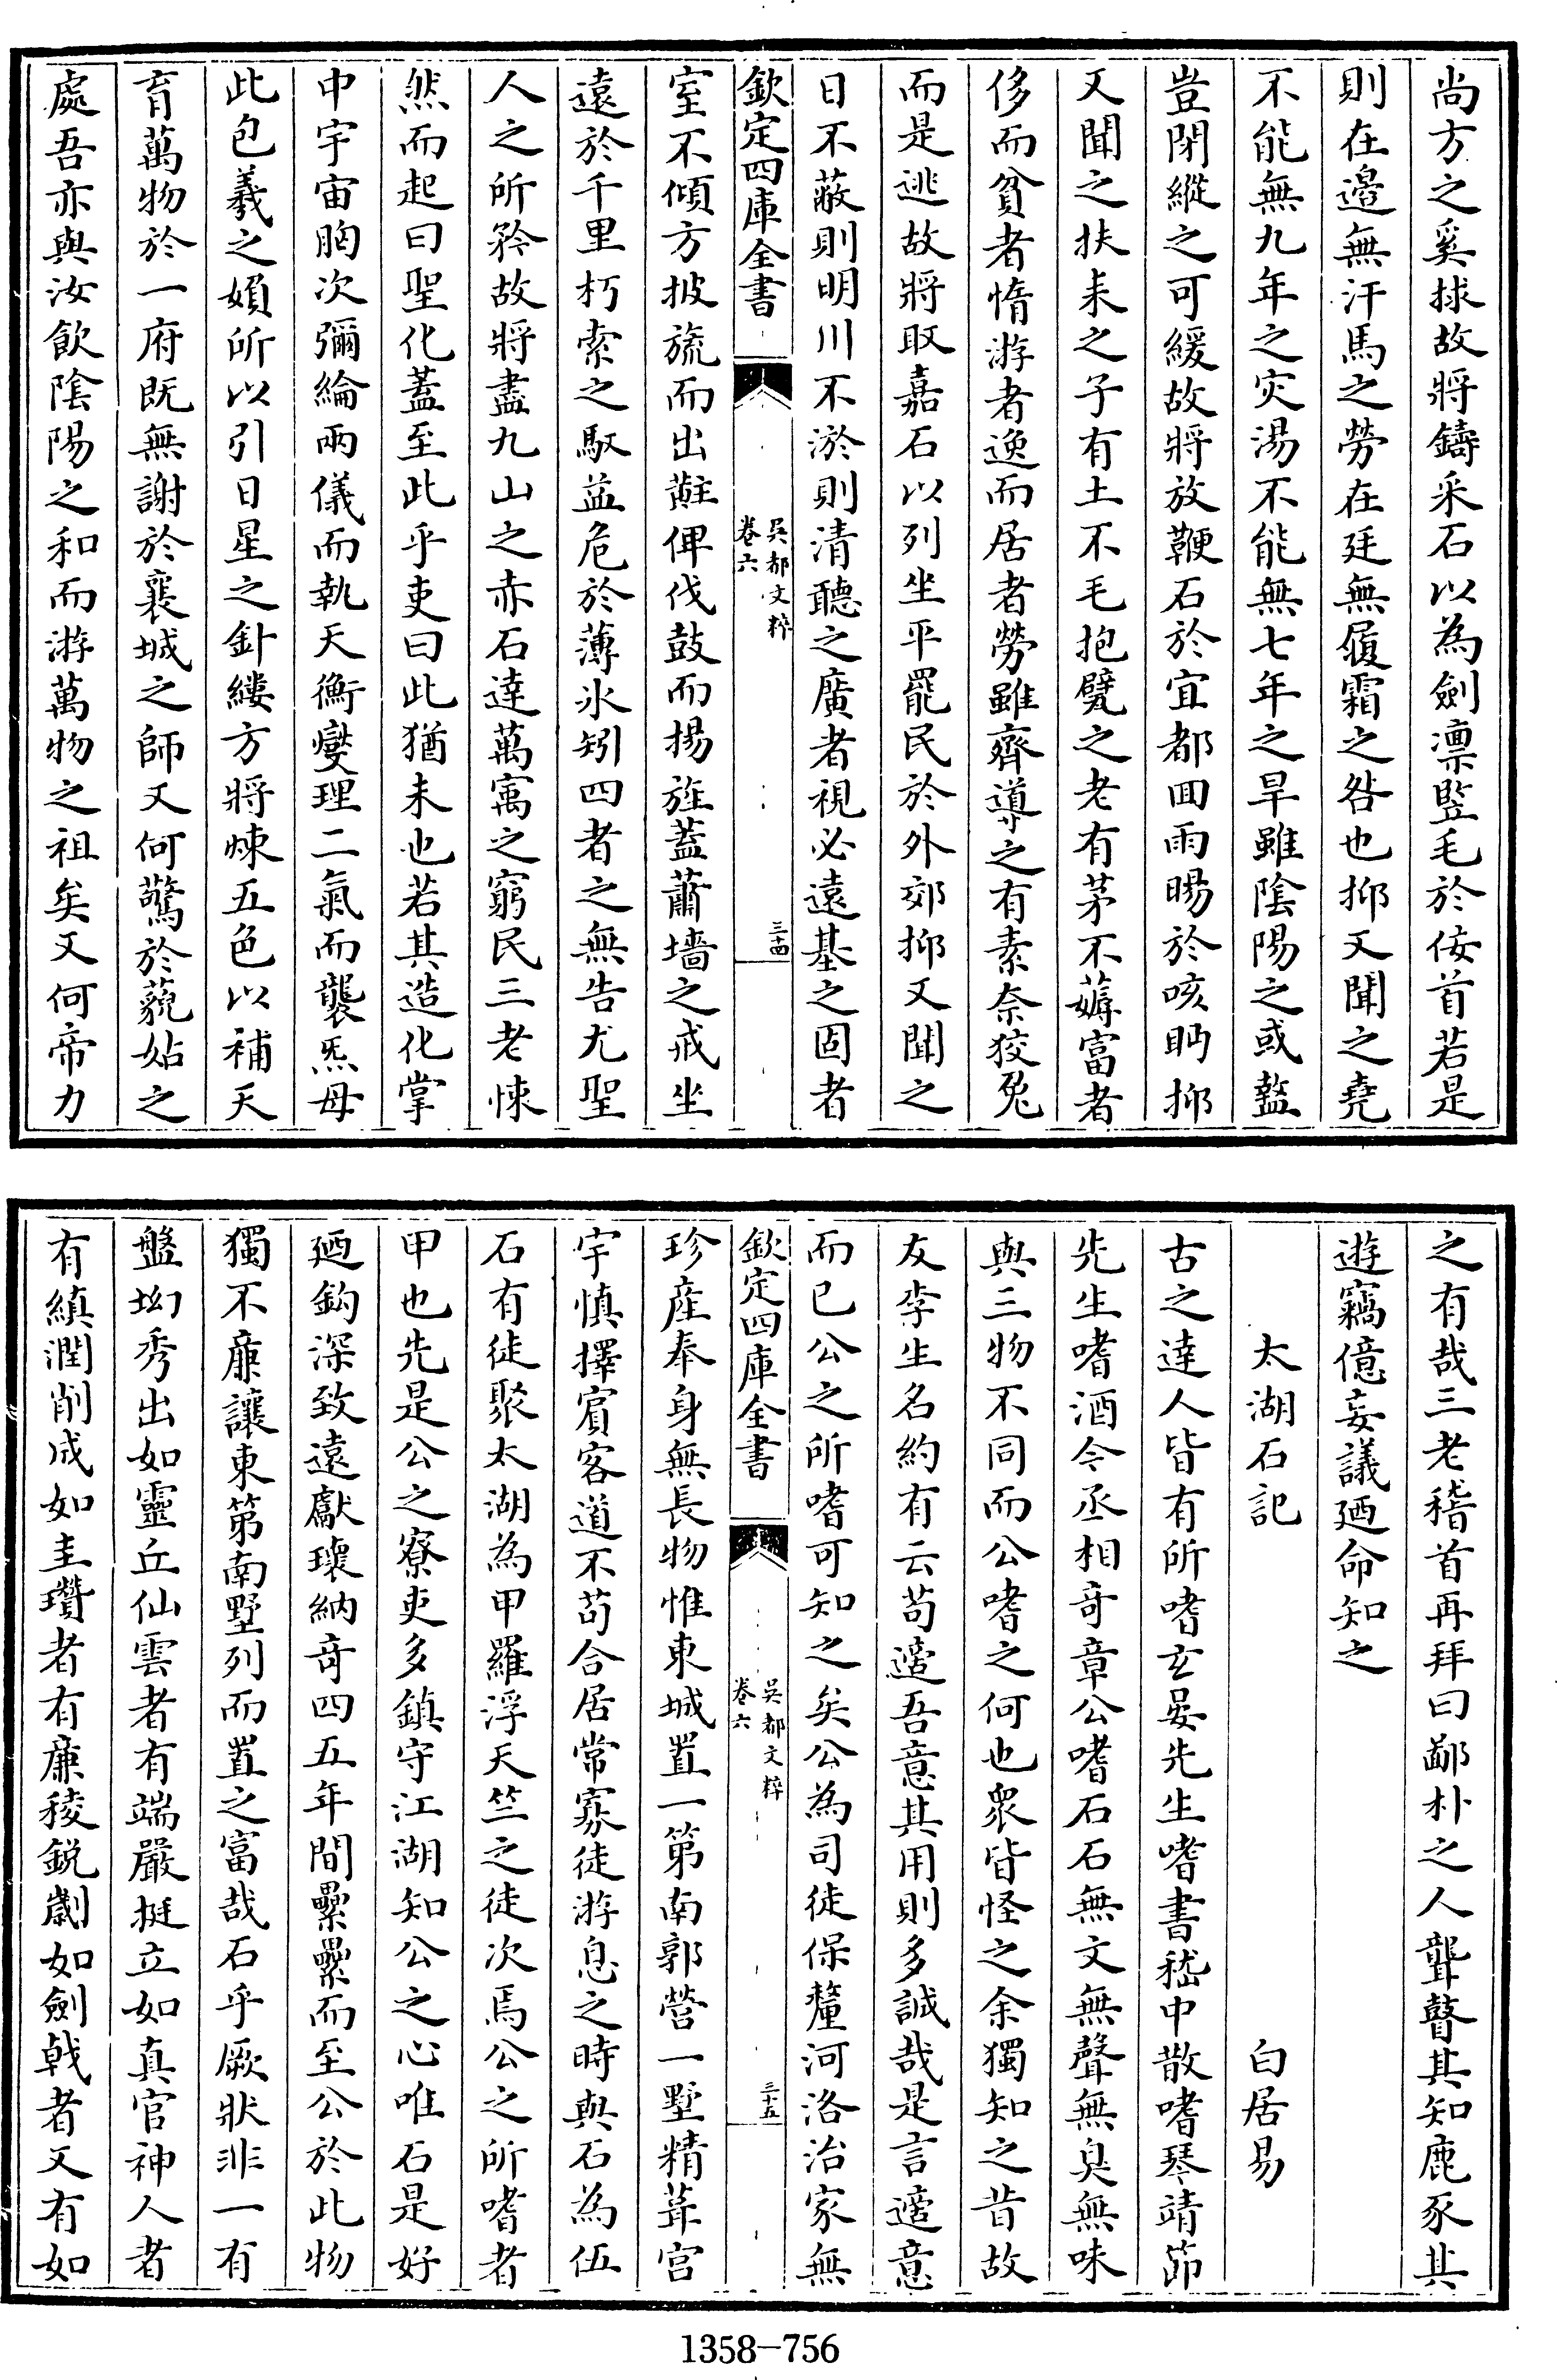 尚方之奚捄故將鑄采石以為劍凛監毛於佞首若是
則在邉無汗馬之勞在廷無履霜之咎也抑又聞之堯
不能無九年之灾湯不能無七年之旱雖陰陽之或盭
豈閉縱之可緩故將放鞭石於宜都囬雨暘於咳眄抑
又聞之扶耒之子有土不毛抱甓之老有茅不薅富者
侈而貧者惰游者逸而居者勞雖齊導之有素奈狡兎
而是逃故將取嘉石以列坐平罷民於外郊抑又聞之
日不蔽則明川不淤則清聽之廣者視必遠基之固者
欽定四庫全書
吳都文粹
卷六
三十四
室不傾方披旒而出黈俾伐鼓而揚旌蓋蕭墻之戒坐
遠於千里朽索之馭益危於薄氷矧四者之無告尤聖
人之所矜故將盡九山之赤石達萬寓之窮民三老悚
然而起曰聖化蓋至此乎吏曰此猶未也若其造化掌
中宇宙胷次彌綸兩儀而執天衡燮理二氣而襲炁母
此包羲之媍所以引日星之針縷方將煉五色以補天
育萬物於一府既無謝於襄城之師又何驚於藐姑之
處吾亦與汝飲陰陽之和而游萬物之祖矣又何帝力
之有哉三老稽首再拜曰鄙朴之人聾瞽其知鹿豕其
遊竊億妄議廼命知之
太湖石記
白居易
古之達人皆有所嗜玄晏先生嗜書嵇中散嗜琴靖節
先生嗜酒今丞相竒章公嗜石石無文無聲無臭無味
與三物不同而公嗜之何也衆皆怪之余獨知之昔故
友李生名約有云苟適吾意其用則多誠哉是言適意
而已公之所嗜可知之矣公為司徒保釐河洛治家無
欽定四庫全書
吳都文粹
卷六
三十五
珍産奉身無長物惟東城置一第南郭營一墅精葺宫
宇慎擇賔客道不苟合居常寡徒游息之時與石為伍
石有徒聚太湖為甲羅浮天竺之徒次焉公之所嗜者
甲也先是公之寮吏多鎮守江湖知公之心唯石是好
廼鈎深致遠獻瓌納竒四五年間纍纍而至公於此物
獨不亷讓東第南墅列而置之富哉石乎厥狀非一有
盤坳秀出如靈丘仙雲者有端嚴挺立如真官神人者
有縝潤削成如圭瓚者有亷稜鋭劌如劍戟者又有如
1358-756